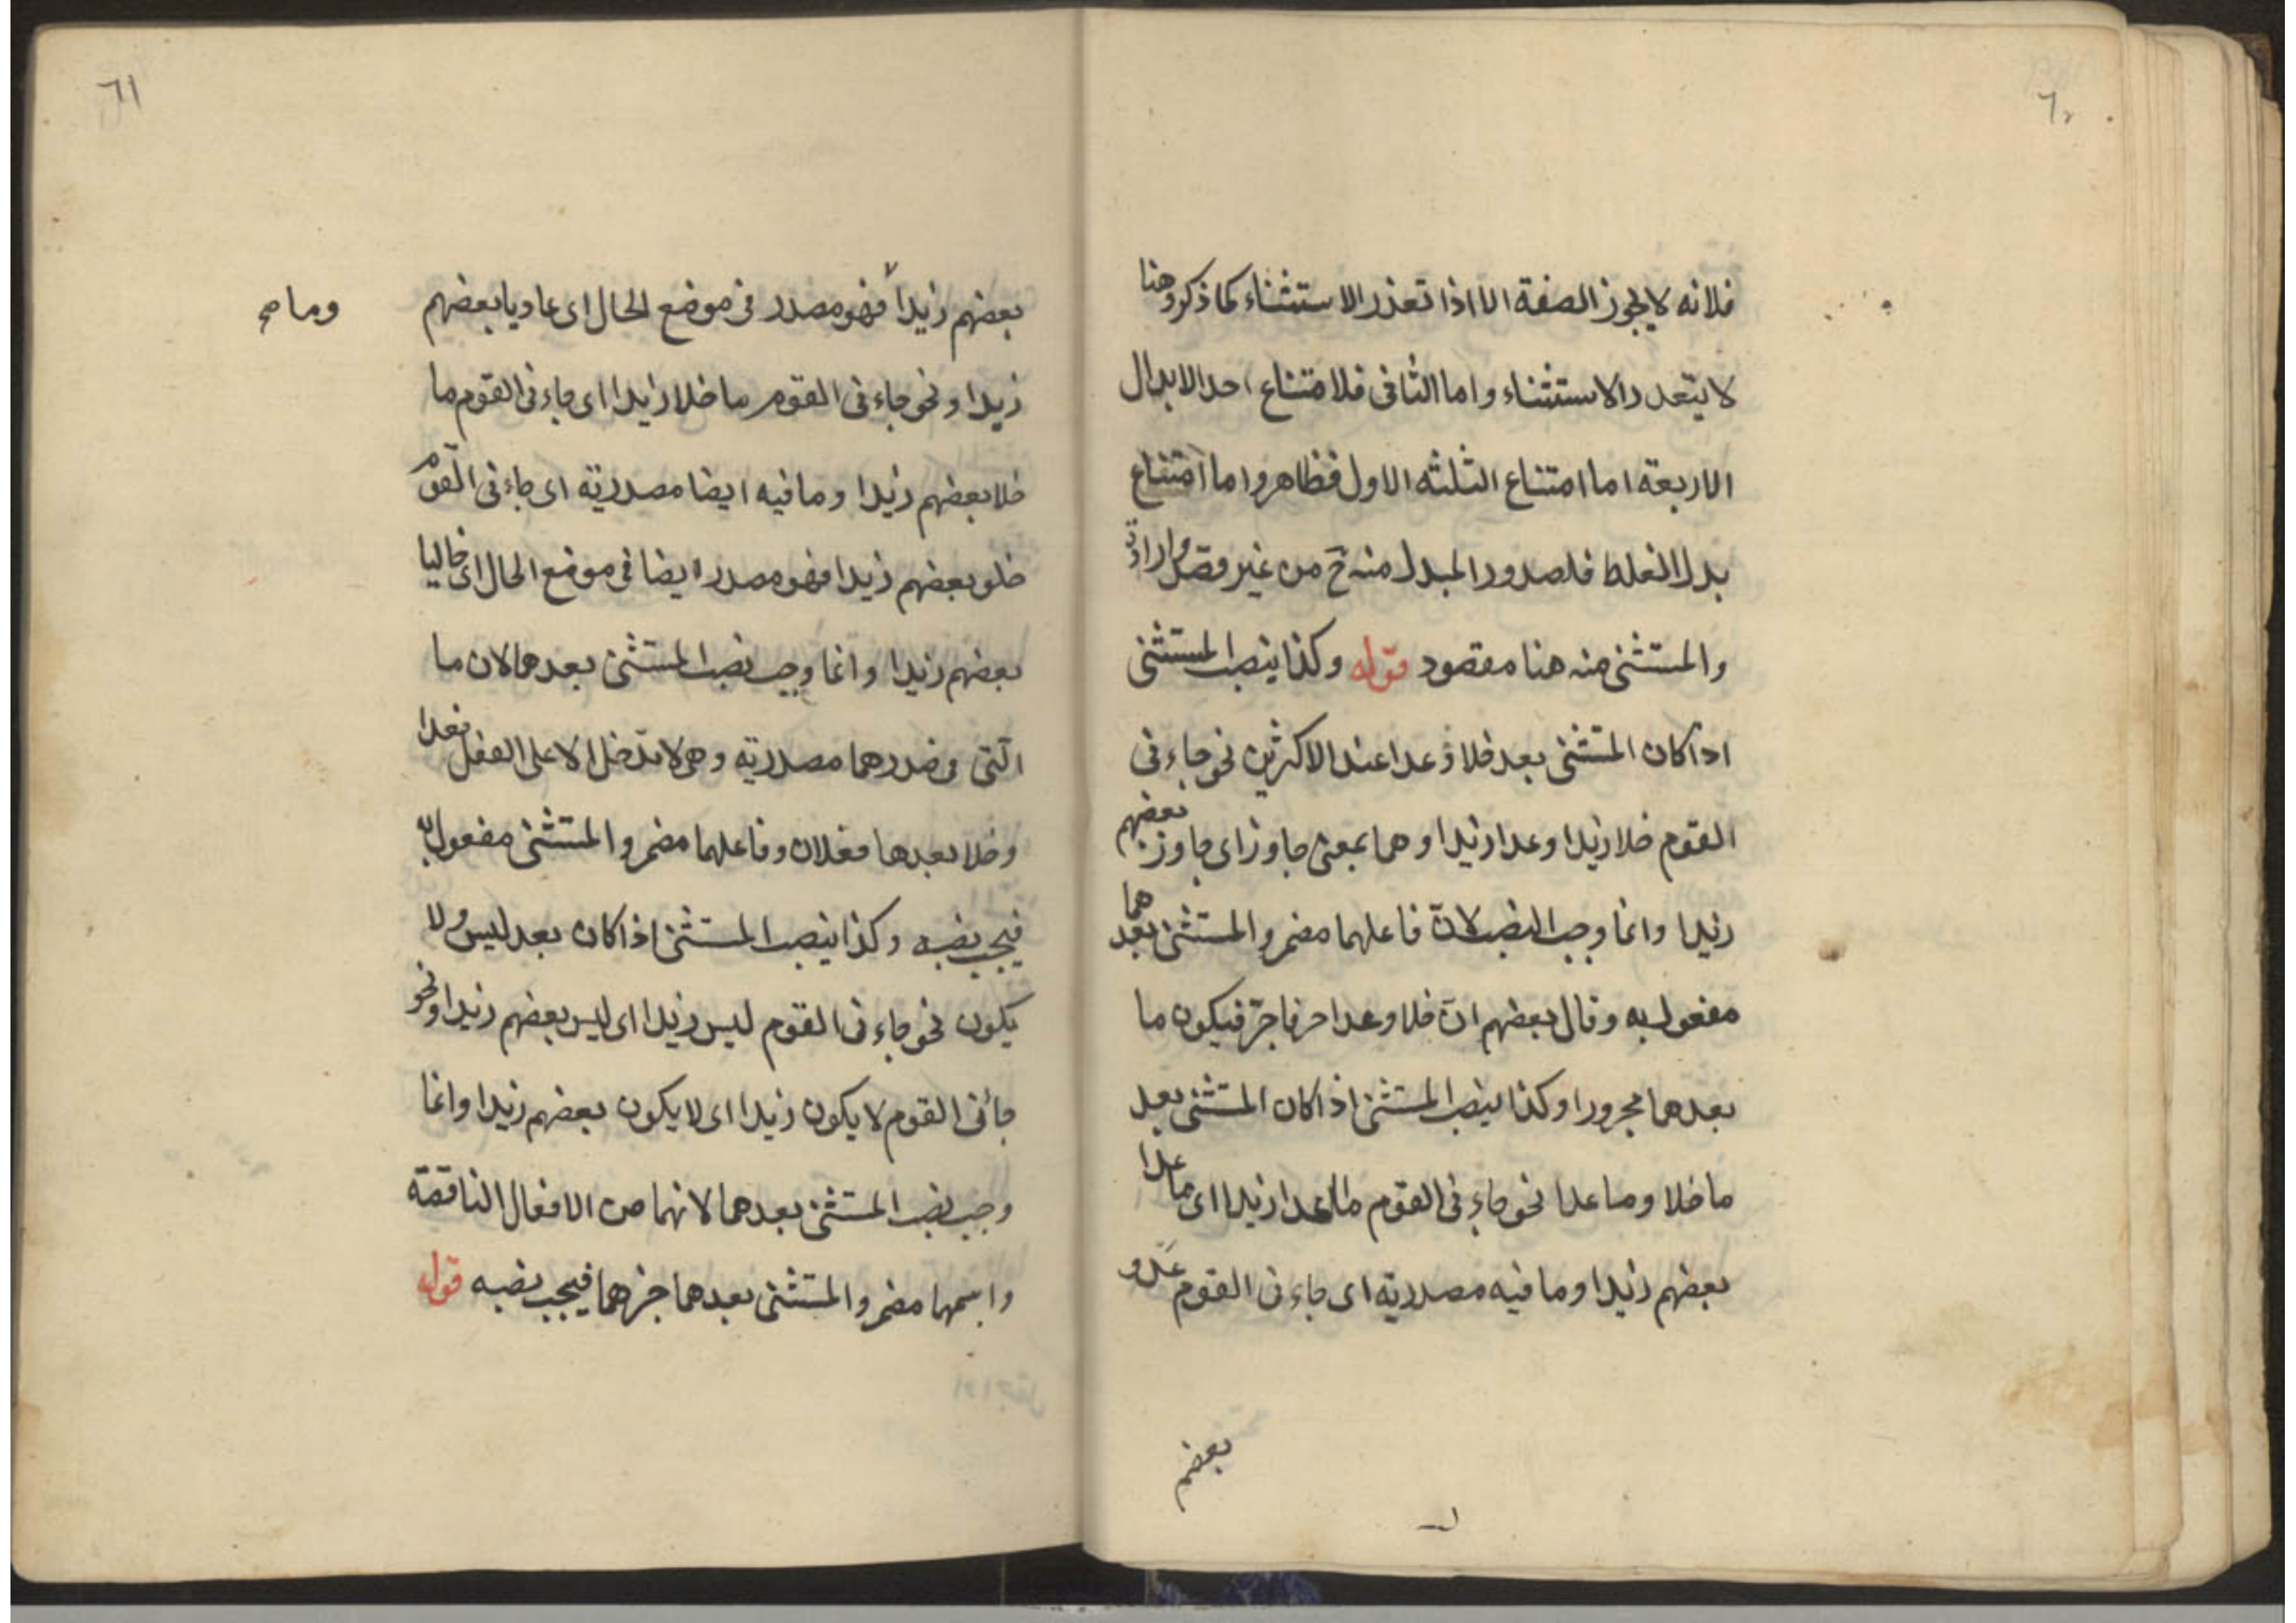 ٦٠
فلانه لا يجوز الصفة الا اذا تعذر الاستثناء كما ذكر وهنا
لا يتعذر الاستثناء واما الثانى فلامتناع احد الابدال
الاربعة اما امتناع الثلثه الاول فظاهر واما امتناع
بدل الغلط فلصدور المبدل منه ح من غير قصد وارادة
والمستثنى منه هنا مقصود قوله وكذا ينصب المستثنى
اذا كان المستثنى بعد خلا وعدا عند الاكثرين نحو جاءنى
القوم خلا زيدا وعدا زيدا وهما بمعنى جاوز اى جاوز بعضهم
زيدا وانما وجب النصب لان فاعلهما مضمر والمستثنى بعدهما
مفعول به وقال بعضهم ان خلا وعدا حرفا جر فيكون ما
بعدهما مجرورا وكذا ينصب المستثنى اذا كان المستثنى بعد
ما خلا وما عدا نحو جاءنى القوم ما عدا زيدا اى ما عدا
بعضهم زيدا وما فيه مصدرية اى جاءنى القوم عدو
بعضهم
٦١
بعضهم زيدا فهو مصدر فى موضع الحال اى عاديا بعضهم
وما صح
زيدا ونحو جاءنى القوم ما خلا زيدا اى جاءنى القوم ما
خلا بعضهم زيدا وما فيه ايضا مصدرية اى جاءنى القوم
خلو بعضهم زيدا فهو مصدر ايضا فى موضع الحال اى خاليا
بعضهم زيدا وانما وجب نصب المستثنى بعدهما لان ما
التى فى صدرهما مصدرية وهى لا تدخل الا على الفعل فعدا
وخلا بعدها فعلان وفاعلهما مضمر والمستثنى مفعول به
فيجب نصبه وكذا ينصب المستثنى اذا كان بعد ليس ولا
يكون نحو جاءنى القوم ليس زيدا اى ليس بعضهم زيدا ونحو
جائنى القوم لا يكون زيدا اى لا يكون بعضهم زيدا وانما
وجب نصب المستثنى بعدهما لانهما من الافعال الناقصة
واسمهما مضمر والمستثنى بعدهما خبرهما فيجب نصبه قوله